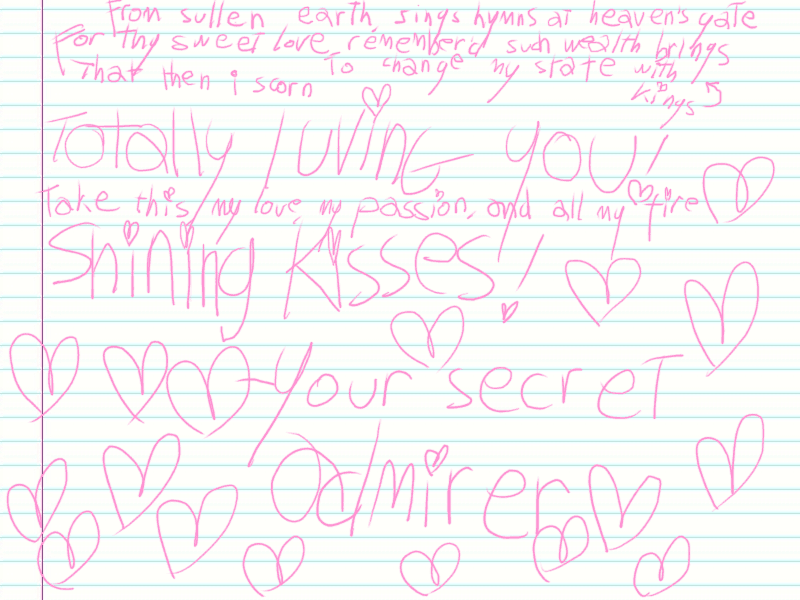 From sullen earth, sings hymns at heaven's gate
For thy sweet love remember'd such wealth brings
That then i scorn To change my state with
kings
Totally luving you!
Take this, my love, my passion, and all my fire
Shining kisses!
-your secret
admirer